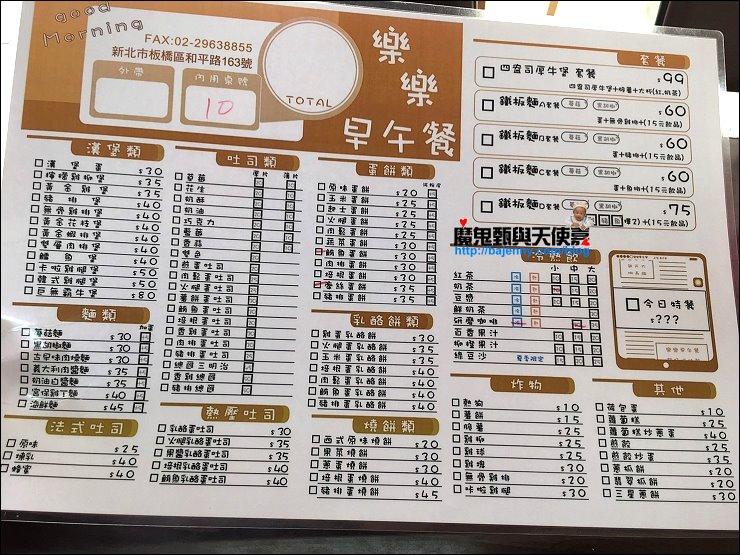 good
Morning
FAX:02-29638855
新北市板橋區和平路163號
外帶
內用桌號
10
TOTAL
樂樂
早午餐
漢堡類
漢堡蛋 $30
檸檬雞柳堡 $35
黃金雞堡 $35
豬排堡 $40
無骨雞排堡 $40
黃金花枝堡 $40
黃金蝦排堡 $40
雙層肉排堡 $40
鱈魚堡 $40
卡啦雞腿堡 $50
巨無霸牛堡 $80
麵類
加蛋
蘑菇麵 $30
黑胡椒麵 $30
古早味肉燥麵 $35
義大利肉醬麵 $35
奶油白醬麵 $35
宮保雞丁麵 $40
海鮮麵 $45
法式吐司
原味 $25
煉乳 $40
蜂蜜 $40
吐司類
厚片 薄片
草莓
花生
奶酥
奶油
巧克力
藍莓
香蒜
雙色
煎蛋吐司
肉鬆蛋吐司
火腿蛋吐司
薯餅蛋吐司
鮪魚蛋吐司
培根蛋吐司
香雞蛋吐司
肉排蛋吐司
豬排蛋吐司
總匯三明治
香雞總匯
豬排總匯
熱壓吐司
乳酪蛋吐司 $30
火腿乳酪蛋吐司 $35
果醬乳酪蛋吐司 $35
培根乳酪蛋吐司 $40
鮪魚乳酪蛋吐司 $40
蛋餅類
原味蛋餅 $20
玉米蛋餅 $25
起士蛋餅 $25
火腿蛋餅 $25
肉鬆蛋餅 $25
蔬菜蛋餅 $30
鮪魚蛋餅 $30
肉排蛋餅 $30
培根蛋餅 $30
香絲蛋餅 $35
豬排蛋餅 $35
乳酪餅類
肉鬆蛋乳酪餅 $35
火腿蛋乳酪餅 $35
玉米蛋乳酪餅 $35
鮪魚蛋乳酪餅 $40
培根蛋乳酪餅 $40
肉排蛋乳酪餅 $40
豬排蛋乳酪餅 $45
燒餅類
西式原味燒餅 $20
果菜燒餅 $30
蔥蛋燒餅 $30
培根蛋燒餅 $40
鮪魚蛋燒餅 $40
豬排蛋燒餅 $45
套餐
四盎司厚牛堡 套餐 $99
四盎司厚牛堡+脆薯+大杯(紅.奶茶)
鐵板麵A套餐 蘑菇 黑胡椒 $60
蛋+無骨雞排+(15元飲品)
鐵板麵B套餐 蘑菇 黑胡椒 $60
蛋+豬排+(15元飲品)
鐵板麵C套餐 蘑菇 黑胡椒 $60
蛋+魚排+(15元飲品)
鐵板麵D套餐 蘑菇 黑胡椒 $75
選2)+(15元飲品)
魔鬼甄與天使嘉
冷熱飲
小 中 大
紅茶
奶茶
豆漿
鮮奶茶
研磨咖啡
百香果汁
柳橙果汁
綠豆沙 夏季限定
今日時餐
$???
炸物
熱狗 $10
薯餅 $15
脆薯 $25
雞柳 $25
雞球 $25
雞塊 $30
無骨雞排 $30
卡啦雞腿 $30
其他
荷包蛋 $10
蘿蔔糕 $25
蘿蔔糕炒蔥蛋 $40
煎餃 $25
煎餃炒蛋 $35
蔥抓餅 $30
翡翠抓餅 $30
三星蔥餅 $30